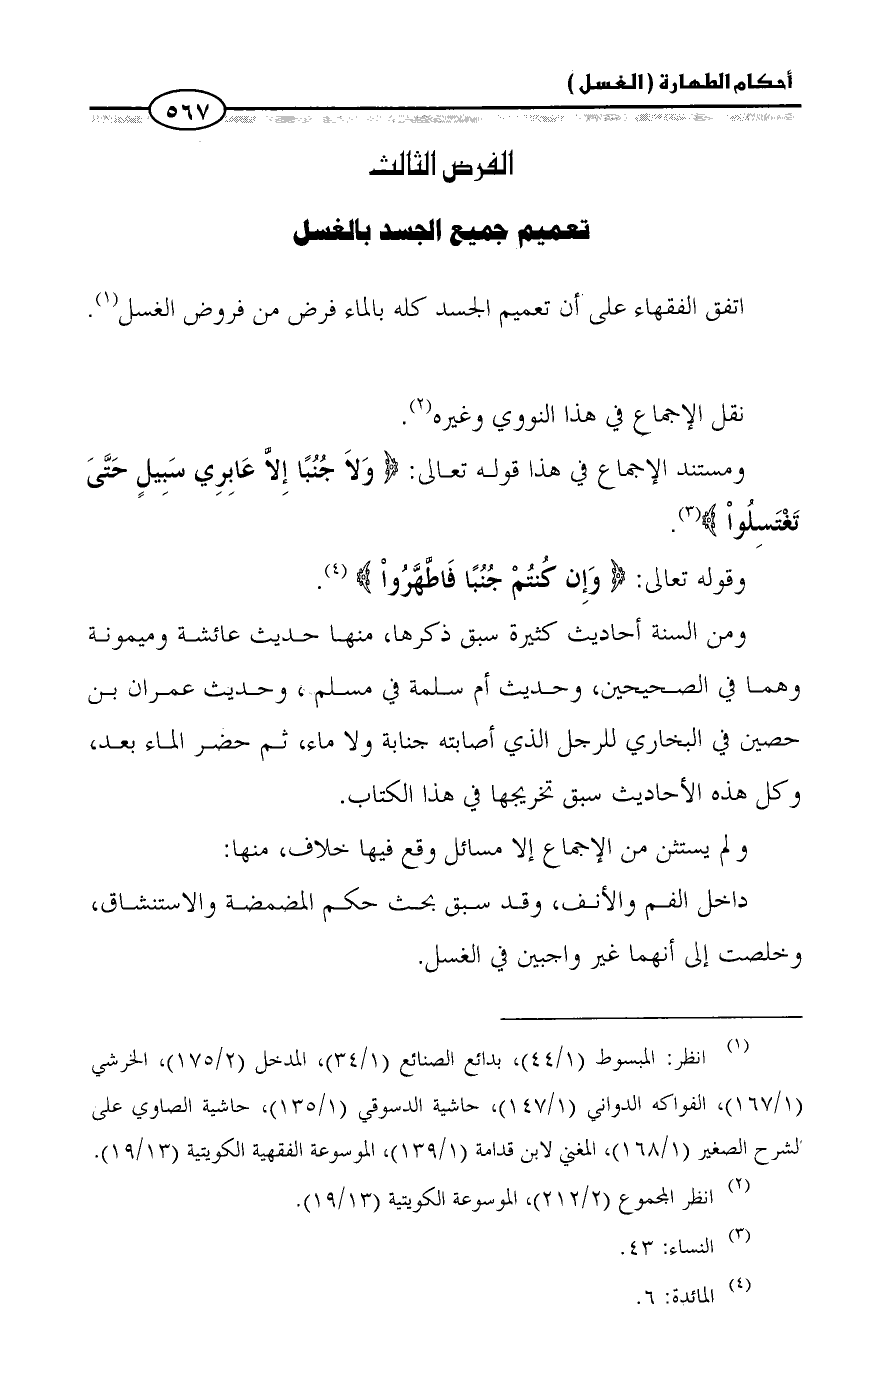 أحكام الطهارة (الغسل)
٥٦٧
الفرض الثالث
تعميم جميع الجسد بالغسل
اتفق الفقهاء على أن تعميم الجسد كله بالماء فرض من فروض الغسل(١).
نقل الإجماع في هذا النووي وغيره(٢).
ومستند الإجماع في هذا قوله تعالى: ﴿ وَلاَ جُنُبًا إِلاَّ عَابِرِي سَبِيلٍ حَتَّىَ
تَغْتَسِلُواْ ﴾(٣).
وقوله تعالى: ﴿ وَإِن كُنتُمْ جُنُبًا فَاطَّهَّرُواْ ﴾ (٤).
ومن السنة أحاديث كثيرة سبق ذكرها، منها حديث عائشة وميمونة
وهما في الصحيحين، وحديث أم سلمة في مسلم، وحديث عمران بن
حصين في البخاري للرجل الذي أصابته جنابة ولا ماء، ثم حضر الماء بعد،
وكل هذه الأحاديث سبق تخريجها في هذا الكتاب.
ولم يستثن من الإجماع إلا مسائل وقع فيها خلاف، منها:
داخل الفم والأنف، وقد سبق بحث حكم المضمضة والاستنشاق،
وخلصت إلى أنهما غير واجبين في الغسل.
(١) انظر: المبسوط (٤٤/١)، بدائع الصنائع (٣٤/١)، المدخل (١٧٥/٢)، الخرشي
(١٦٧/١)، الفواكه الدواني (١٤٧/١)، حاشية الدسوقي (١٣٥/١)، حاشية الصاوي على
لشرح الصغير (١٦٨/١)، المغني لابن قدامة (١٣٩/١)، الموسوعة الفقهية الكويتية (١٩/١٣).
(٢) انظر المجموع (٢١٢/٢)، الموسوعة الكويتية (١٩/١٣).
(٣) النساء: ٤٣.
(٤) المائدة: ٦.